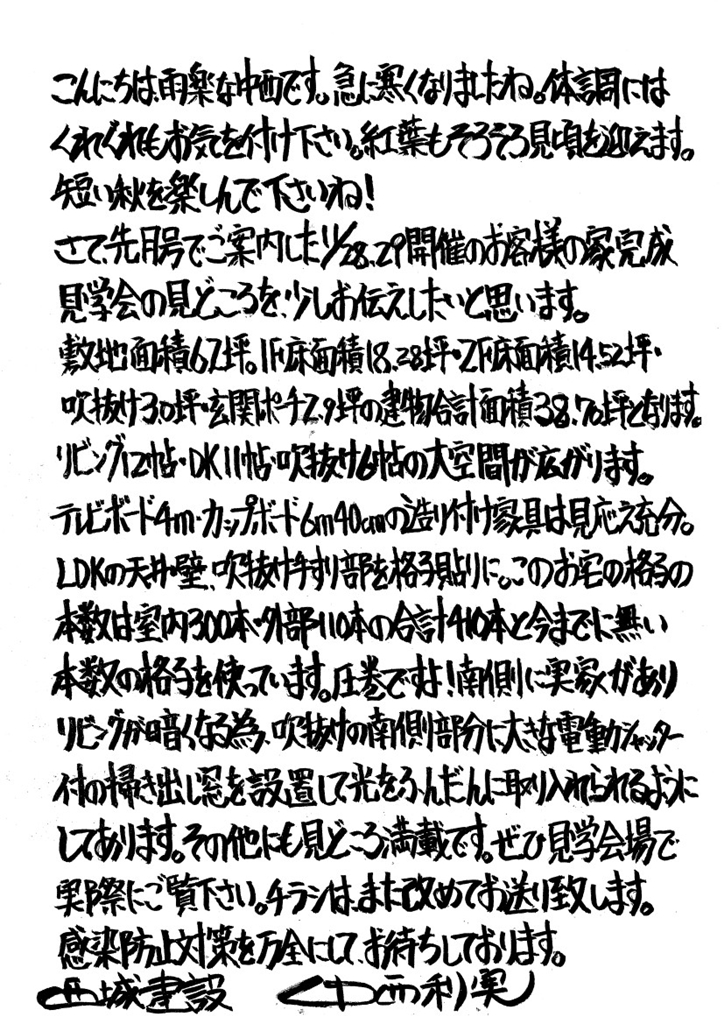 こんにちは、雨楽な中西です。急に寒くなりましたね。体調には
くれぐれもお気を付け下さい。紅葉もそろそろ見頃を迎えます。
短い秋を楽しんで下さいね!
さて、先月号でご案内した11/28.29開催のお客様の家完成
見学会の見どころを、少しお伝えしたいと思います。
敷地面積67坪。1F床面積18.28坪・2F床面積14.52坪・
吹抜け3.0坪・玄関ポーチ2.9坪の建物合計面積38.70坪となります。
リビング12帖・DK11帖・吹抜け6帖の大空間が広がります。
テレビボード4m・カップボード6m40cmの造り付け家具は見応え充分。
LDKの天井・壁、吹抜け手すり部を格子貼りに。このお宅の格子の
本数は室内300本・外部110本の合計410本と今までに無い
本数の格子を使っています。圧巻ですよ!南側に実家があり
リビングが暗くなる為、吹抜けの南側部分に大きな電動シャッター
付の掃き出し窓を設置して光をふんだんに取り入れられるように
しております。その他にも見どころ満載です。ぜひ見学会場で
実際にご覧下さい。チラシは、また改めてお送り致します。
感染防止対策を万全にして、お待ちしております。
西城建設 中西利実